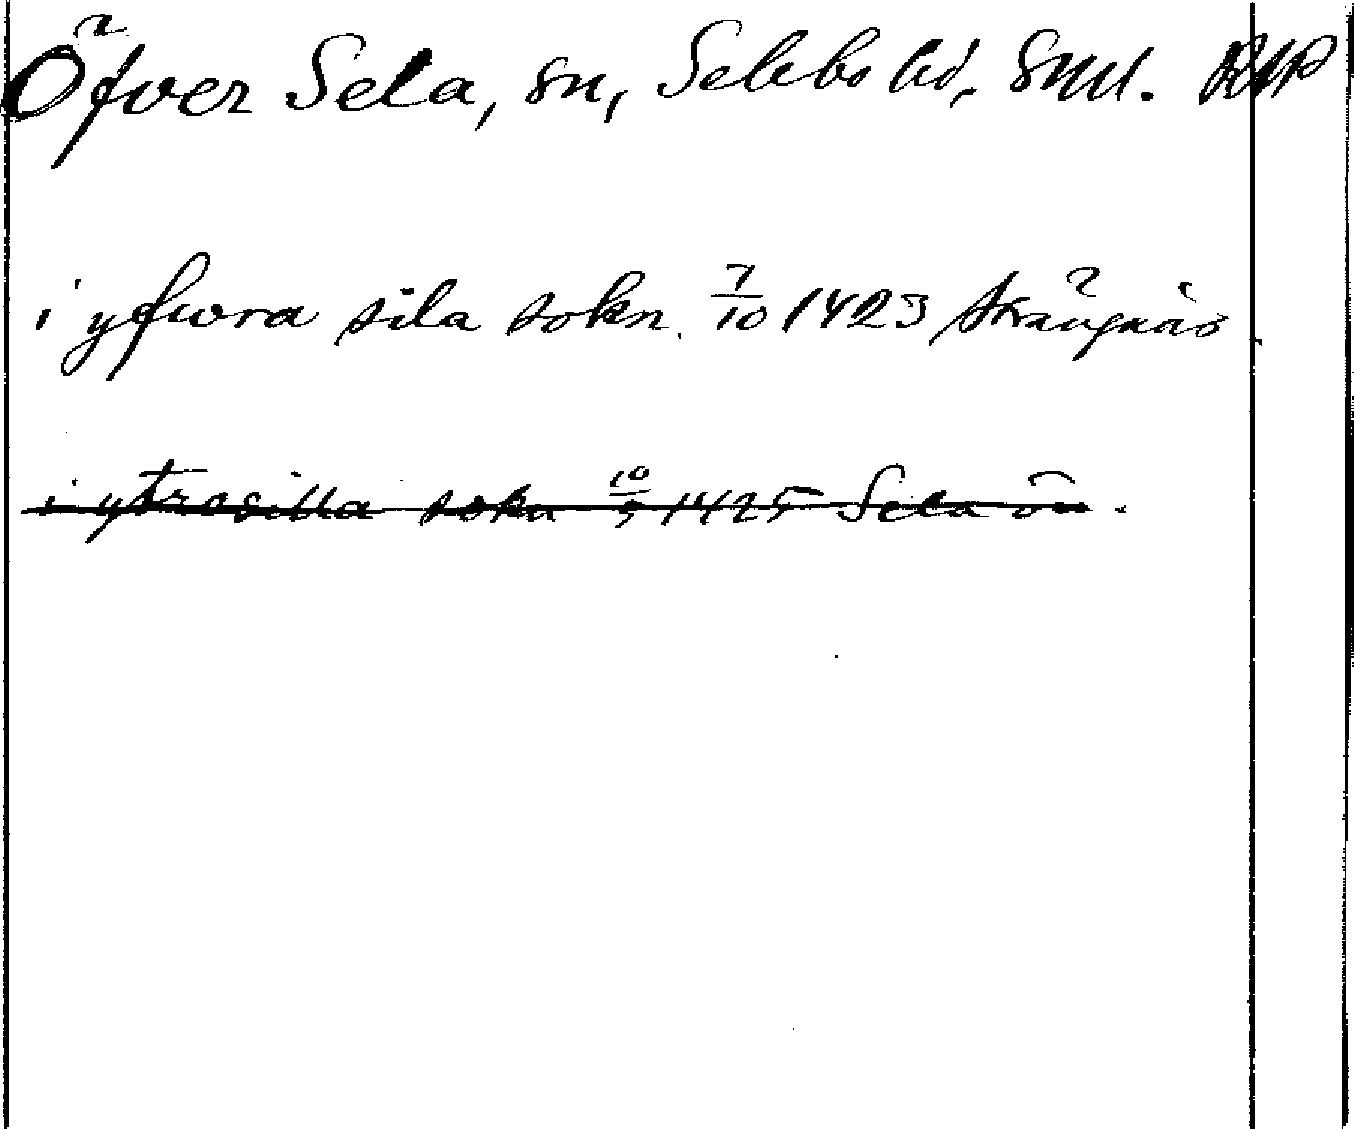 Öfver Sela, sn, Selebo hd, Sml. RAP
i yfwra sila sokn. 7/10 1423 Strängnäs
i ytrasilla sokn 10/5 1425 Sela ön.